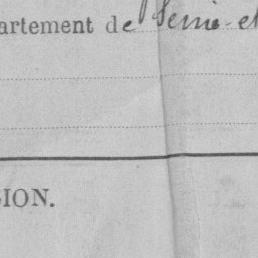 artement de Seine-et
ION.